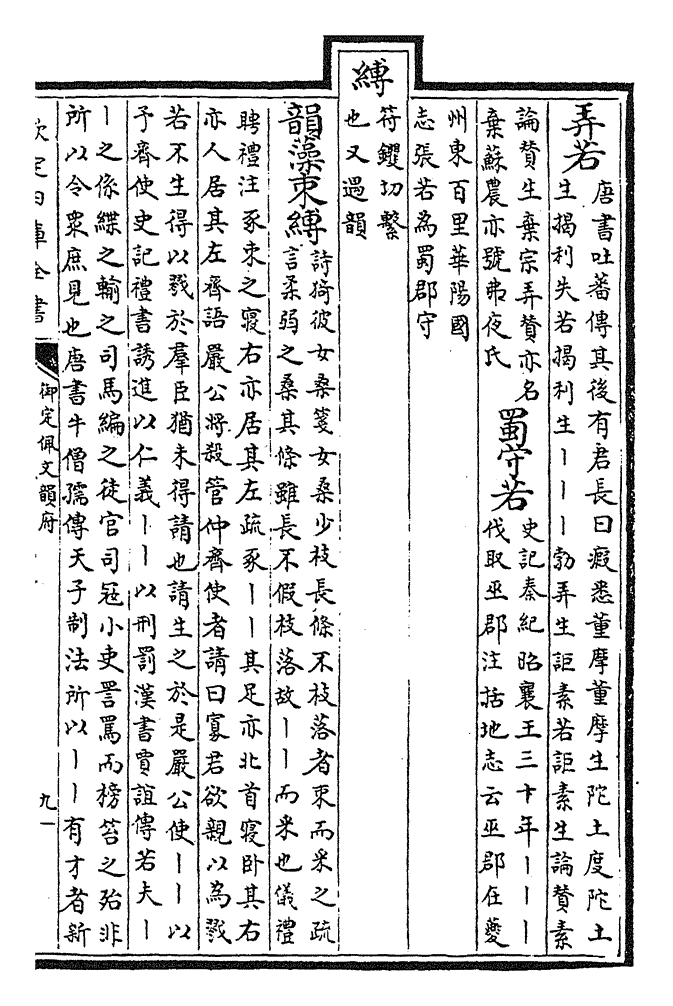 弄若
唐書吐蕃傳其後有君長曰瘕悉董摩董摩生陀土度陀土
生揭利失若揭利生丨丨丨勃弄生詎素若詎素生論贊素
論贊生棄宗弄贊亦名
棄蘇農亦號弗夜氏
蜀守若
史記秦紀昭襄王三十年丨丨丨
伐取巫郡注括地志云巫郡在夔
州東百里華陽國
志張若為蜀郡守
縛
符钁切繫
也又過韻
韻藻束縛
詩猗彼女桑箋女桑少枝長條不枝落者束而采之疏
言柔弱之桑其條雖長不假枝落故丨丨而采也儀禮
聘禮注豕束之寢右亦居其左疏豕丨丨其足亦北首寢卧其右
亦人居其左齊語嚴公將殺管仲齊使者請曰寡君欲親以為戮
若不生得以戮於羣臣猶未得請也請生之於是嚴公使丨丨以
予齊使史記禮書誘進以仁義丨丨以刑罰漢書賈誼傳若夫丨
丨之係緤之輸之司馬編之徒官司冦小吏詈罵而榜笞之殆非
所以令衆庶見也唐書牛僧孺傳天子制法所以丨丨有才者新
欽定四庫全書
御定佩文韻府
九一